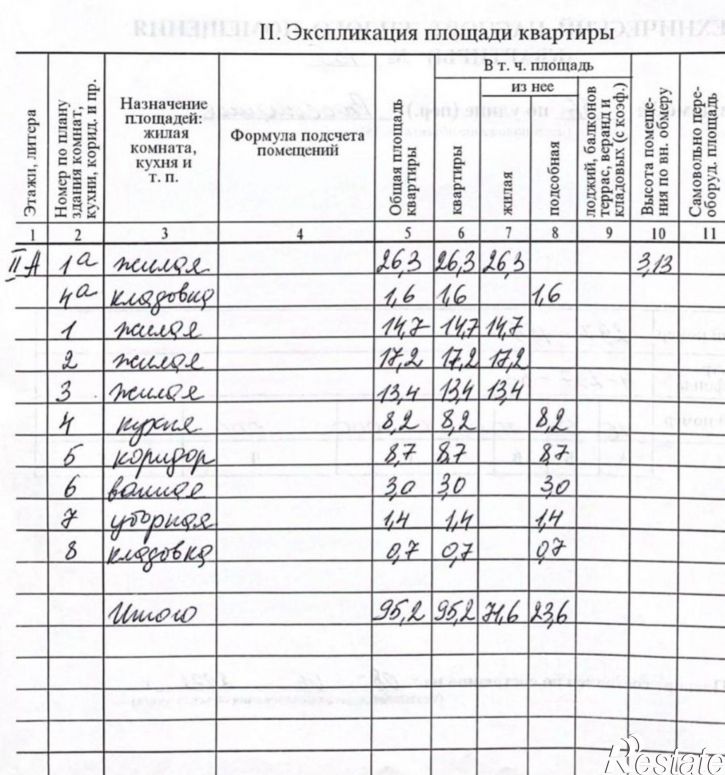 II. Экспликация площади квартиры
Этажи, литера
Номер по плану здания комнат, кухни, корид. и пр.
Назначение площадей: жилая комната, кухня и т. п.
Формула подсчета помещений
Общая площадь квартиры
В т. ч. площадь
квартиры
из нее
жилая
подсобная
лоджий, балконов террас, веранд и кладовых (с коэф.)
Высота помеще-ния по вн. обмеру
Самовольно пере-оборуд. площадь
1 2 3 4 5 6 7 8 9 10 11
II А 1а жилая 26,3 26,3 26,3 3,13
4а кладовка 1,6 1,6 1,6
1 жилая 14,7 14,7 14,7
2 жилая 17,2 17,2 17,2
3 жилая 13,4 13,4 13,4
4 кухня 8,2 8,2 8,2
5 коридор 8,7 8,7 8,7
6 ванная 3,0 3,0 3,0
7 уборная 1,4 1,4 1,4
8 кладовка 0,7 0,7 0,7
Итого 95,2 95,2 71,6 23,6
Restate